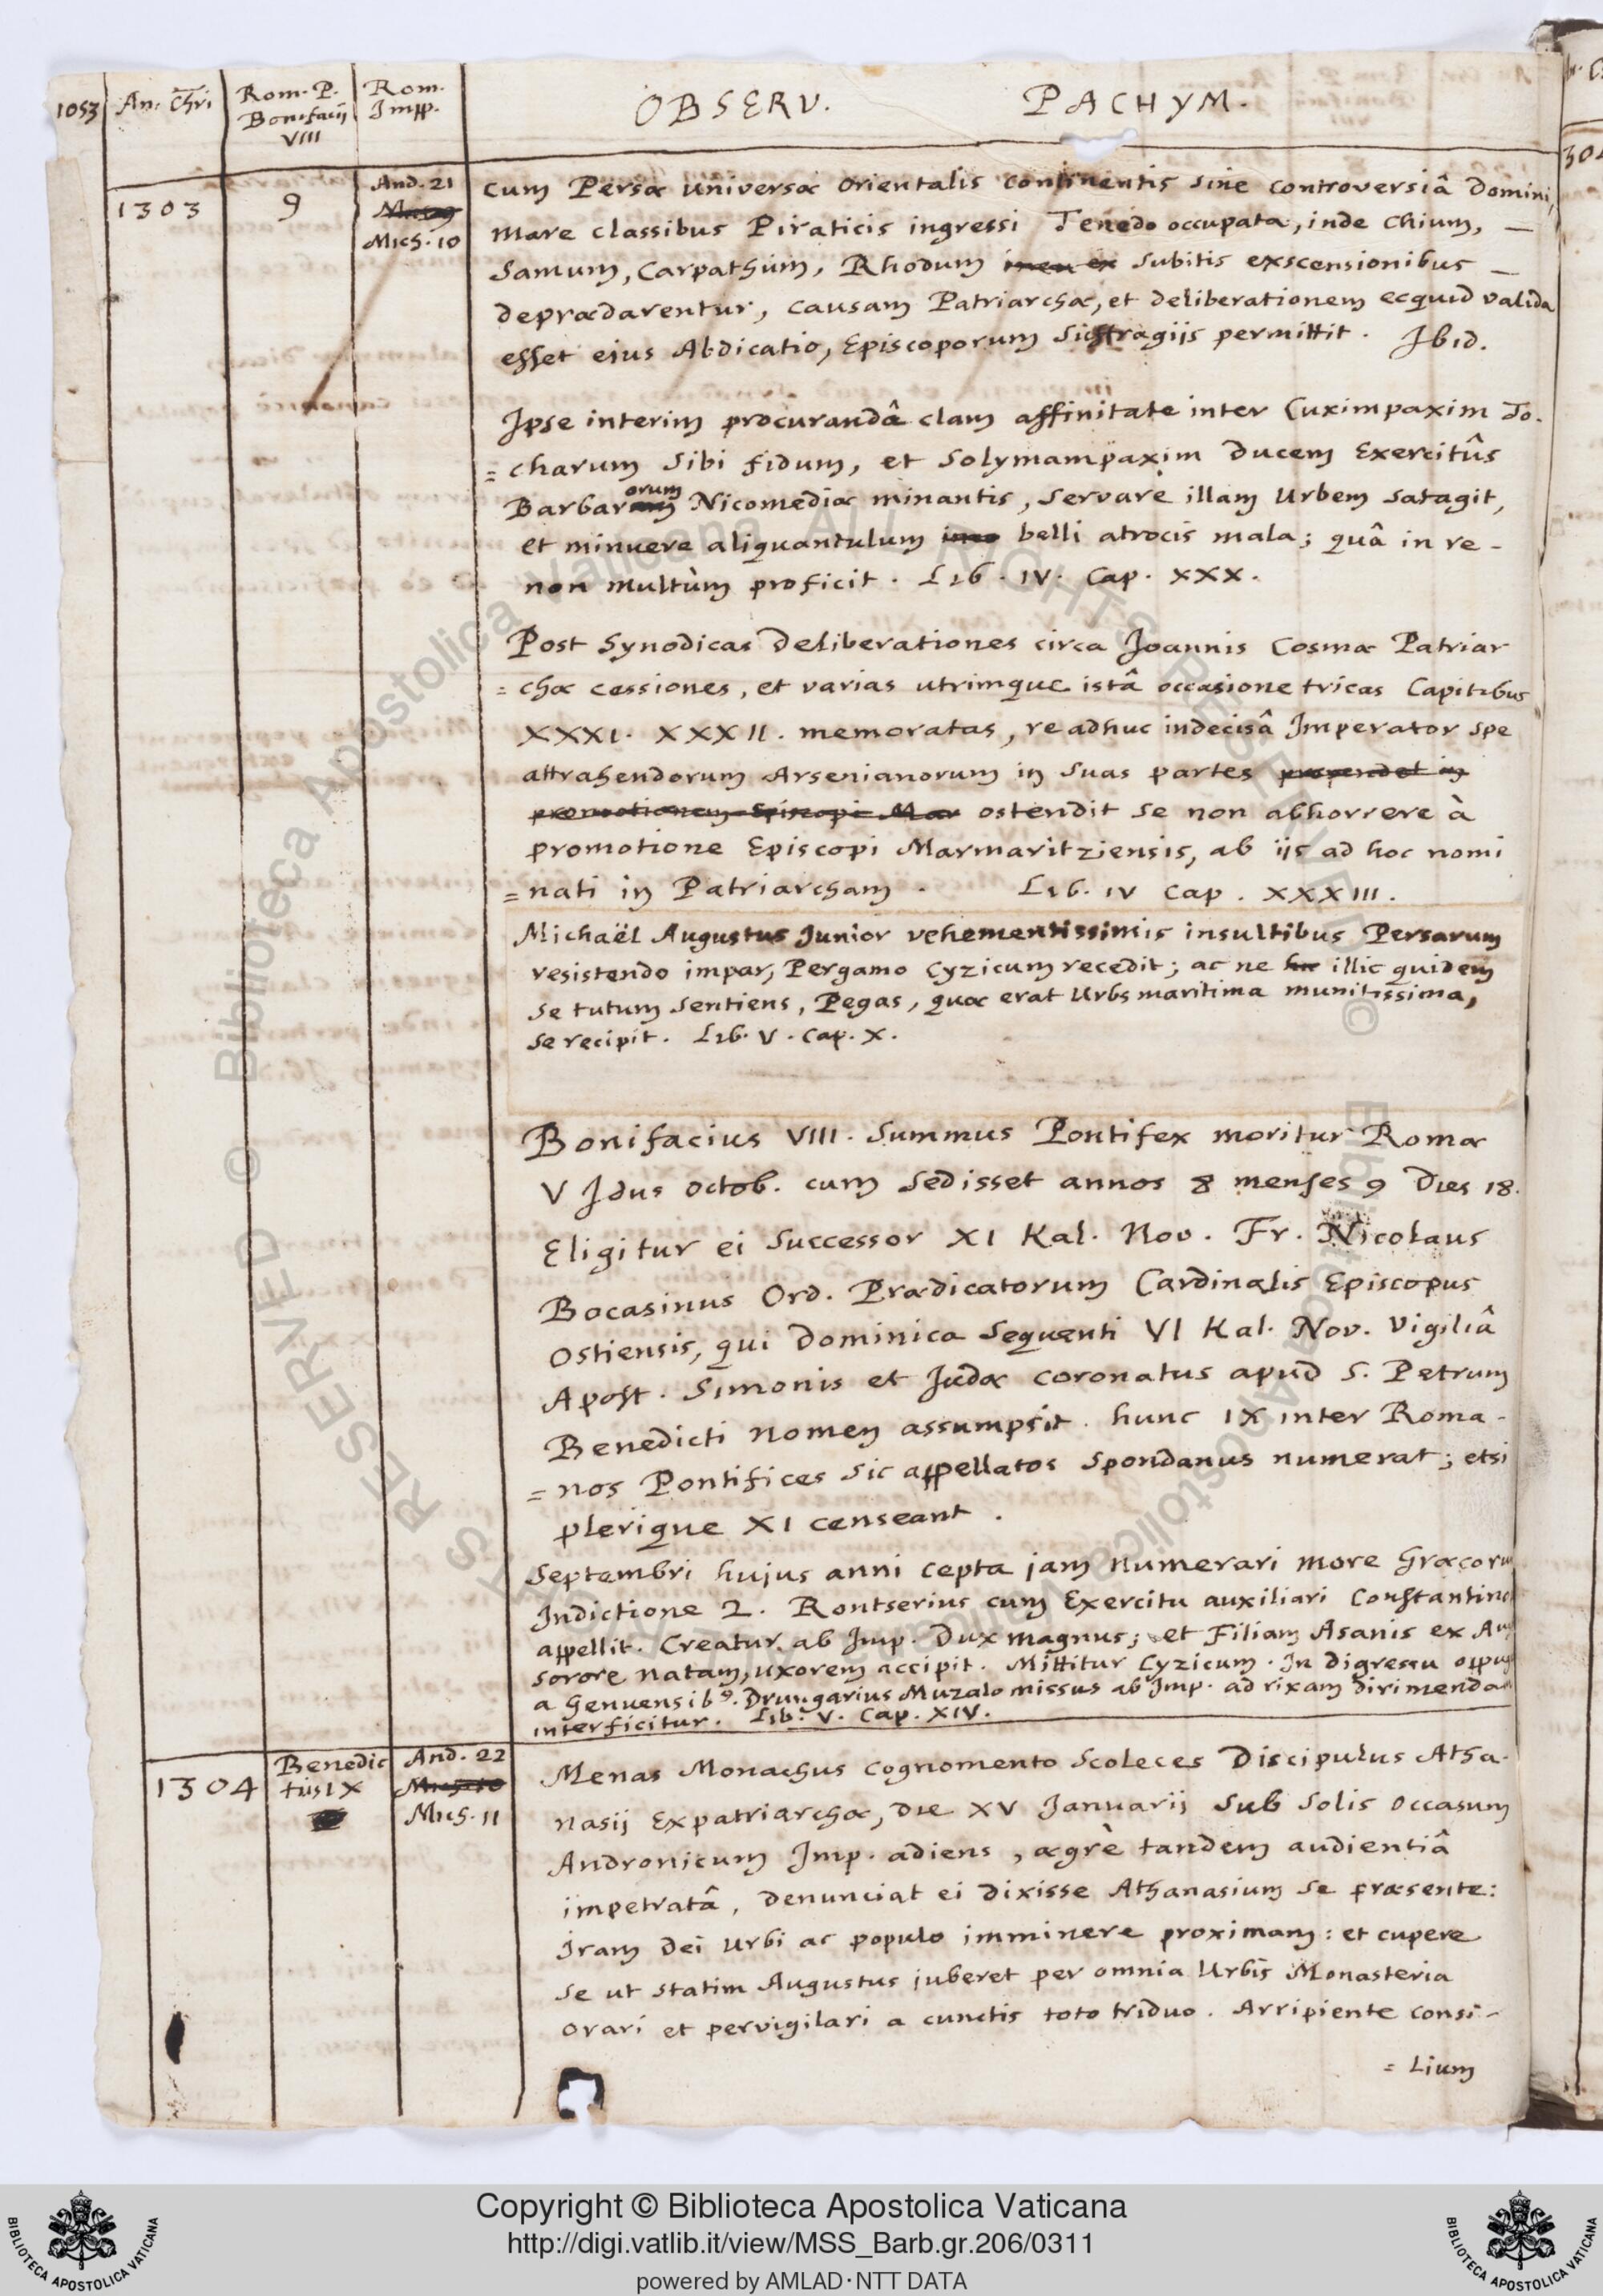 1053 An. Chri Rom. P. Bonifacij VIII Rom. Impp. OBSERV. PACHYM.
1303 9 And. 21 Mich. 10
cum Persæ universæ orientalis continentis sine controversiâ Domini,
mare classibus Piraticis ingressi Tenedo occupata, inde Chium, —
Samum, Carpathum, Rhodum subitis exscensionibus —
deprædarentur, causam Patriarchæ, et deliberationem ecquid valida
esset eius Abdicatio, Episcoporum suffragijs permittit. Ibid.
Ipse interim procurandâ clam affinitate inter Cuximpaxim To-
=charum sibi fidum, et Solymampaxim Ducem Exercitûs
Barbarorum Nicomediæ minantis, servare illam Urbem satagit,
et minuere aliquantulum belli atrocis mala; quâ in re -
non multùm proficit. Lib. IV. Cap. XXX.
Post Synodicas Deliberationes circa Joannis Cosmæ Patriar
=chæ cessiones, et varias utrimque istâ occasione tricas Capitibus
XXXI. XXXII. memoratas, re adhuc indecisâ Imperator spe
attrahendorum Arsenianorum in suas partes propendet in
promotionem Episcopi Mar ostendit se non abhorrere à
promotione Episcopi Marmaritziensis, ab ijs ad hoc nomi
=nati in Patriarcham. Lib. IV Cap. XXXIII.
Michaël Augustus Junior vehementissimis insultibus Persarum
resistendo impar, Pergamo Cyzicum recedit; ac ne hic illic quidem
se tutum sentiens, Pegas, quæ erat Urbs maritima munitissima,
se recipit. Lib. V. Cap. X.
Bonifacius VIII. Summus Pontifex moritur Romæ
V Idus Octob. cum sedisset annos 8 menses 9 Dies 18.
Eligitur ei Successor XI Kal. Nov. Fr. Nicolaus
Bocasinus Ord. Prædicatorum Cardinalis Episcopus
Ostiensis, qui Dominica sequenti VI Kal. Nov. Vigiliâ
Apost. Simonis et Judæ coronatus apud S. Petrum
Benedicti nomen assumpsit. hunc IX inter Roma-
=nos Pontifices sic appellatos Spondanus numerat; etsi
plerique XI censeant.
Septembri hujus anni cepta jam numerari more Græcoru
Indictione 2. Rontserius cum Exercitu auxiliari Constantino
appellit. Creatur ab Imp. Dux magnus; et Filiam Asanis ex Aug
sorore natam, uxorem accipit. Mittitur Cyzicum. In digressu oppug
a Genuensibꝰ. Drungarius Muzalo missus ab Imp. ad rixam dirimendam
interficitur. Lib. V. Cap. XIV.
1304 Benedictus IX And. 22 Mich. 11
Menas Monachus cognomento Scoleces Discipulus Atha-
nasij Expatriarchæ, die XV Januarij sub Solis occasum
Andronicum Imp. adiens, ægrè tandem audientiâ
impetratâ, denunciat ei dixisse Athanasium se præsente:
Iram Dei Urbi ac populo imminere proximam: et cupere
se ut statim Augustus juberet per omnia Urbis Monasteria
orari et pervigilari a cunctis toto triduo. Arripiente consi-
=lium
Copyright © Biblioteca Apostolica Vaticana
http://digi.vatlib.it/view/MSS_Barb.gr.206/0311
powered by AMLAD·NTT DATA